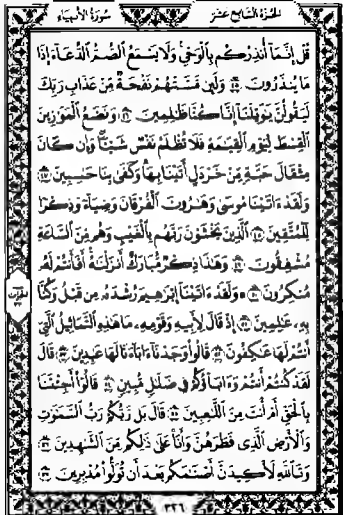 الجزء السابع عشر سورة الأنبياء
قل إنما أنذركم بالوحي ولا يسمع الصم الدعاء إذا
ما ينذرون ٤٥ ولئن مستهم نفحة من عذاب ربك
ليقولن يويلنا إنا كنا ظلمين ٤٦ ونضع الموزين
القسط ليوم القيمة فلا تظلم نفس شيئا وإن كان
مثقال حبة من خردل أتينا بها وكفى بنا حسبين ٤٧
ولقد ءاتينا موسى وهرون الفرقان وضياء وذكرا
للمتقين ٤٨ الذين يخشون ربهم بالغيب وهم من الساعة
مشفقون ٤٩ وهذا ذكر مبارك أنزلنه أفأنتم له
منكرون ٥٠ ولقد ءاتينا إبرهيم رشده من قبل وكنا
به علمين ٥١ إذ قال لأبيه وقومه ما هذه التماثيل التي
أنتم لها عكفون ٥٢ قالوا وجدنا ءاباءنا لها عبدين ٥٣ قال
لقد كنتم أنتم وءاباؤكم في ضلل مبين ٥٤ قالوا أجئتنا
بالحق أم أنت من اللعبين ٥٥ قال بل ربكم رب السموت
والأرض الذي فطرهن وأنا على ذلكم من الشهدين ٥٦
وتالله لأكيدن أصنمكم بعد أن تولوا مدبرين ٥٧
٣٢٦